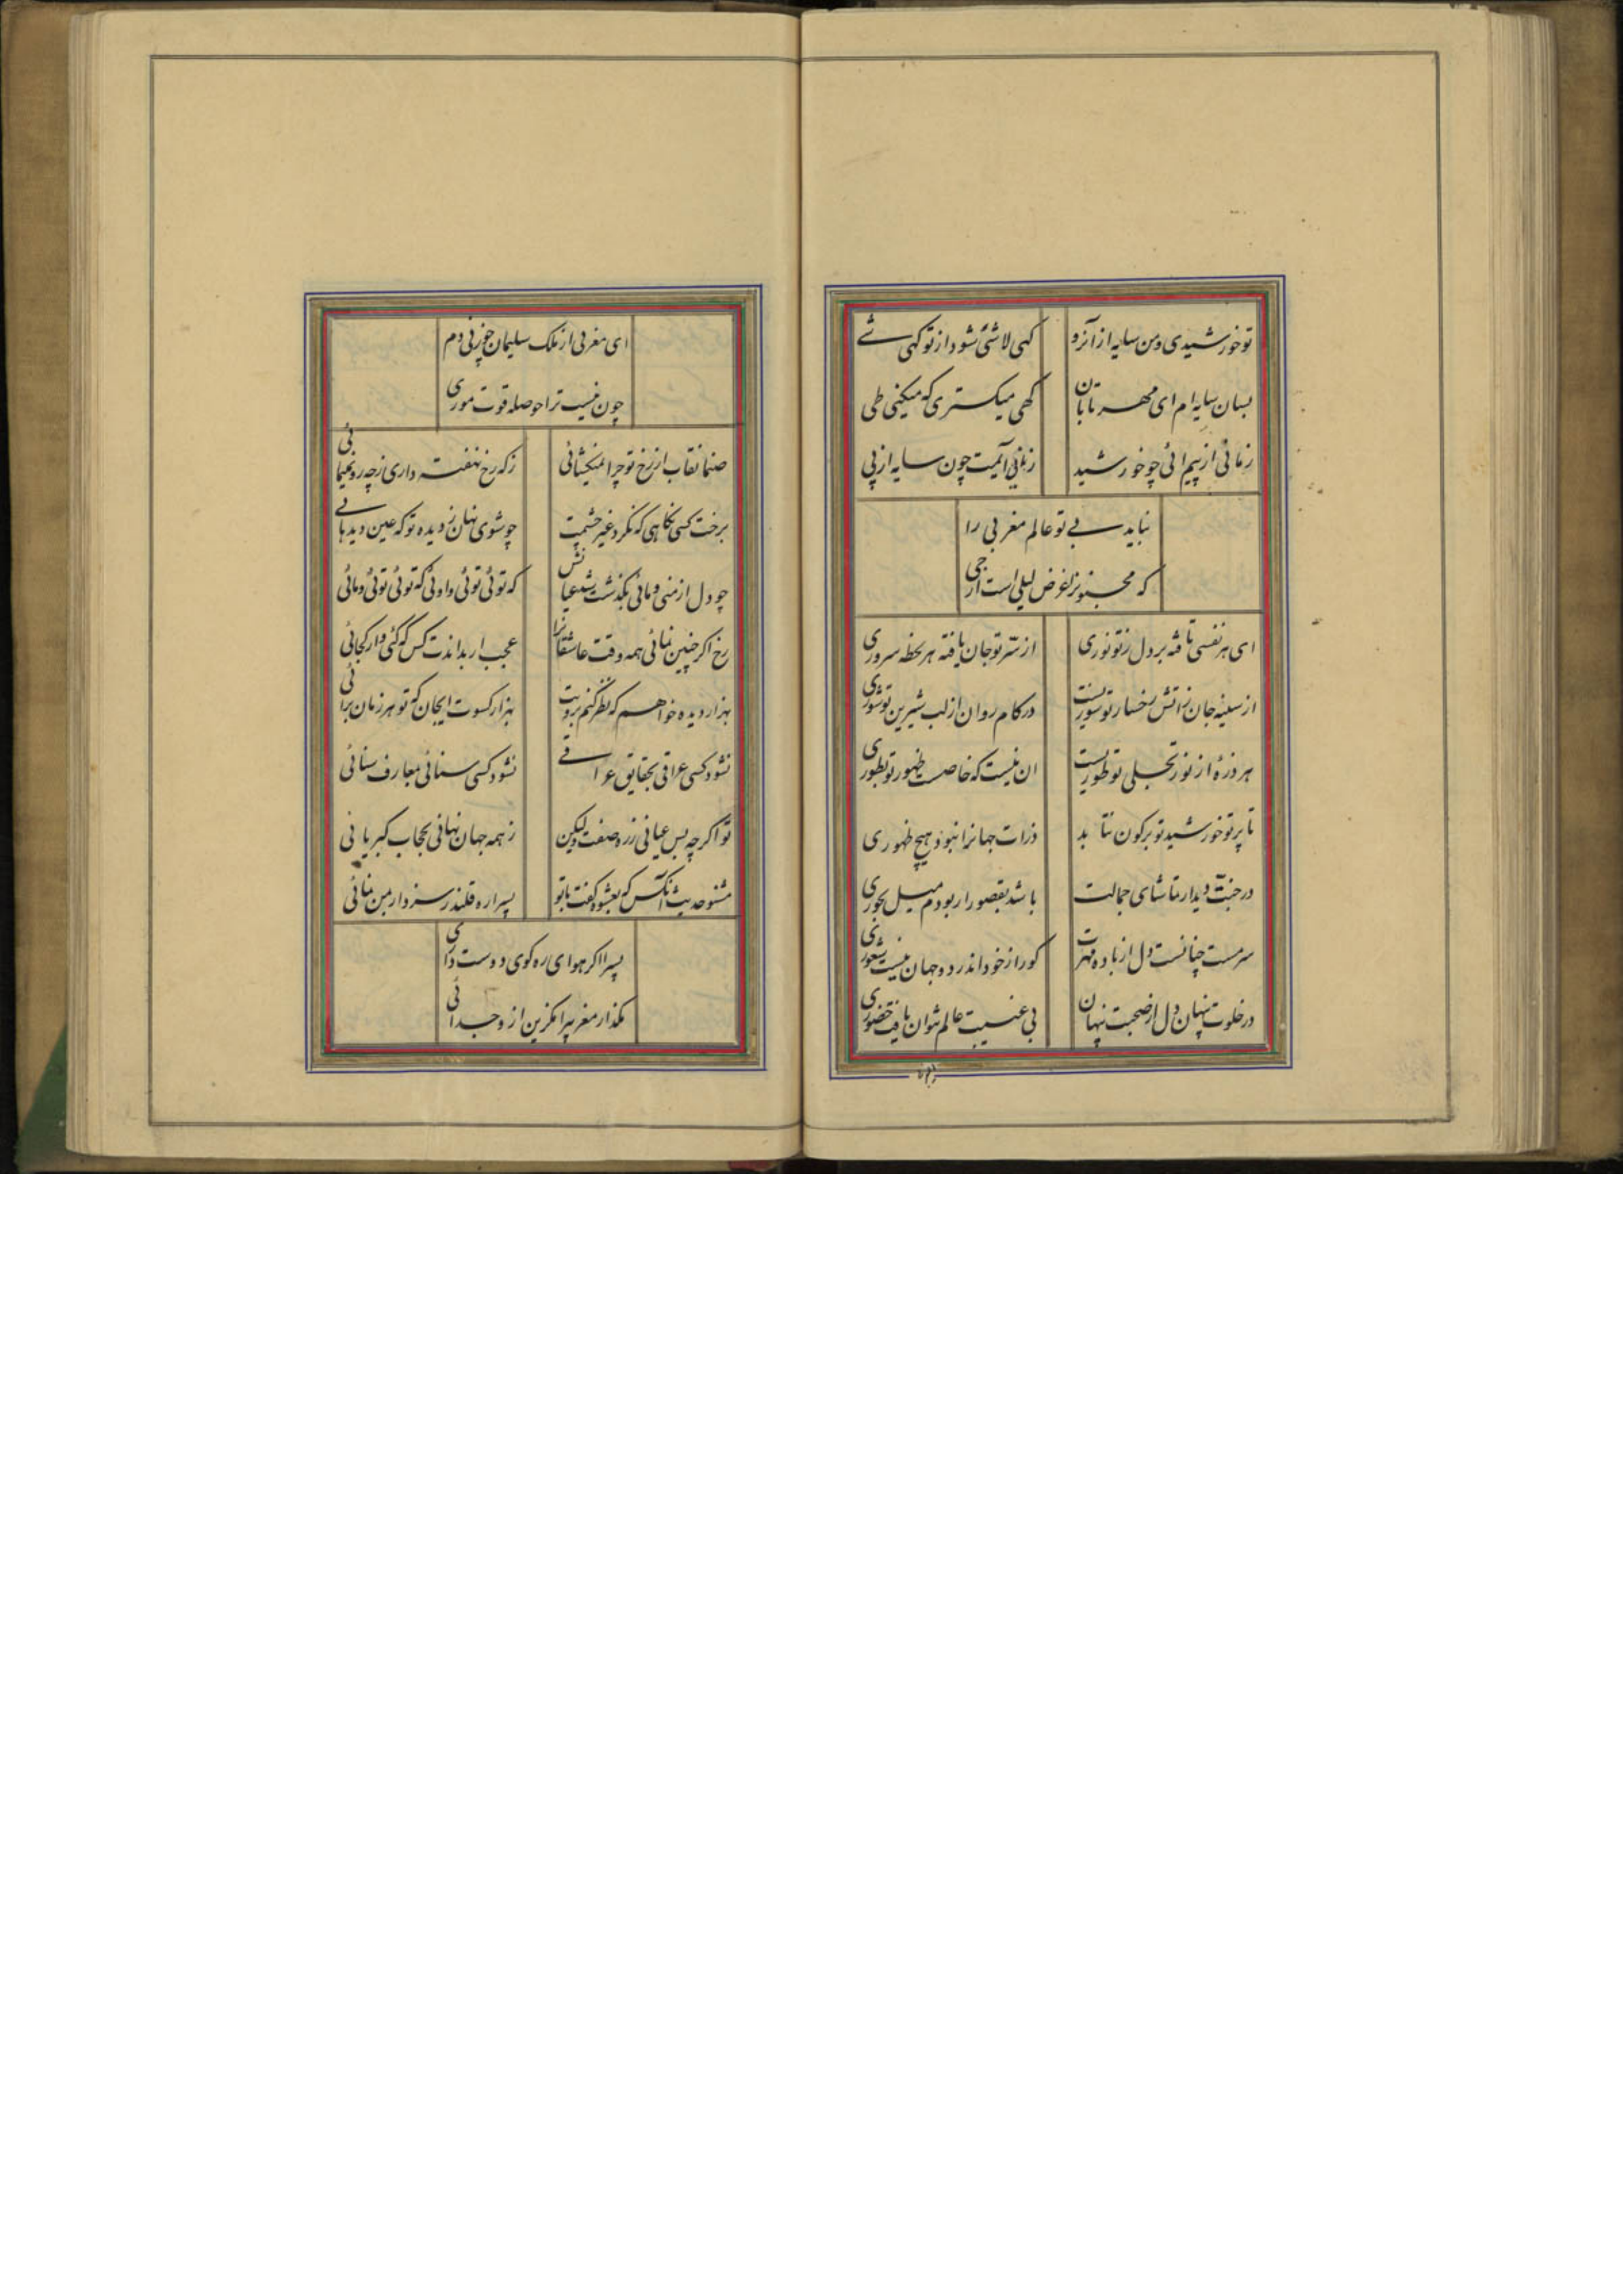 توخورشیدی ومن سایه ازآنرو کهی لاشئ شود ازتوکهی شے
بسان سایه ام ای مهرتابان کهی میکستری که میکنی طی
زمانی ازپیم ائی چوخورشید زمانی آئمت چون سایه ازپی
نباید بے توعالم مغربی را
که مجنونرا غرض لیلی است ازحی
ای هرنفسی تافته بردل زتونوری ازسرتوجان یافته هرلحظه سروری
ازسینه جان زاتش رخسارتوسوریست درکام روان ازلب شیرین توشوری
هرذرهٔ ازنورتجلی توطوریست ان نیست که خاصست ظهورتوبطوری
تاپرتوخورشید توبرکون نتابد ذرات جهانرا نبود هیچ ظهوری
درجنت دیدار تماشای جمالت باشد بقصورار بودم میل بحوری
سرمست چنانست دل ازباده مهرت کورا زخود اندر دوجهان نیست شعوری
درخلوت پنهان دل ازصحبت پنهان بی غیبت عالم نتوان یافت حضوری
ای مغربی ازملک سلیمان چوزنی دم
چون نیست تراحوصله قوت موری
صنما نقاب ازرخ توچرا نمیکشائی زکه رخ نهفته داری زچه رونمینمائی
برخت کسی نکاهی که نکرد غیرچشمت چوشوی نهان زدیده توکه عین دیدهائے
چودل ازمنی ومائی بکذشت شد عیانش که توئی توئی واوئی که توئی توئی ومائی
رخ اکرچنین نمائی همه وقت عاشقانرا عجب ار بداندت کس که کئی واز کجائی
بهزار دیده خواهم که نظرکنم برویت بهزارکسوت ایجان که توهرزمان برائی
نشود کسی عراقی بحقایق عراقے نشود کسی سنائی بمعارف سنائی
تواکرچه بس عیانی زره صفت ولیکن زهمه جهان نهانی بحجاب کبریائی
مشنوحدیث آنکس که بعشوه کفت باتو پسرا ره قلندر سزد اربمن نمائی
پسرا اکرهوای ره کوی دوست داری
بکذار مغربیرا بکزین ازوجدائی